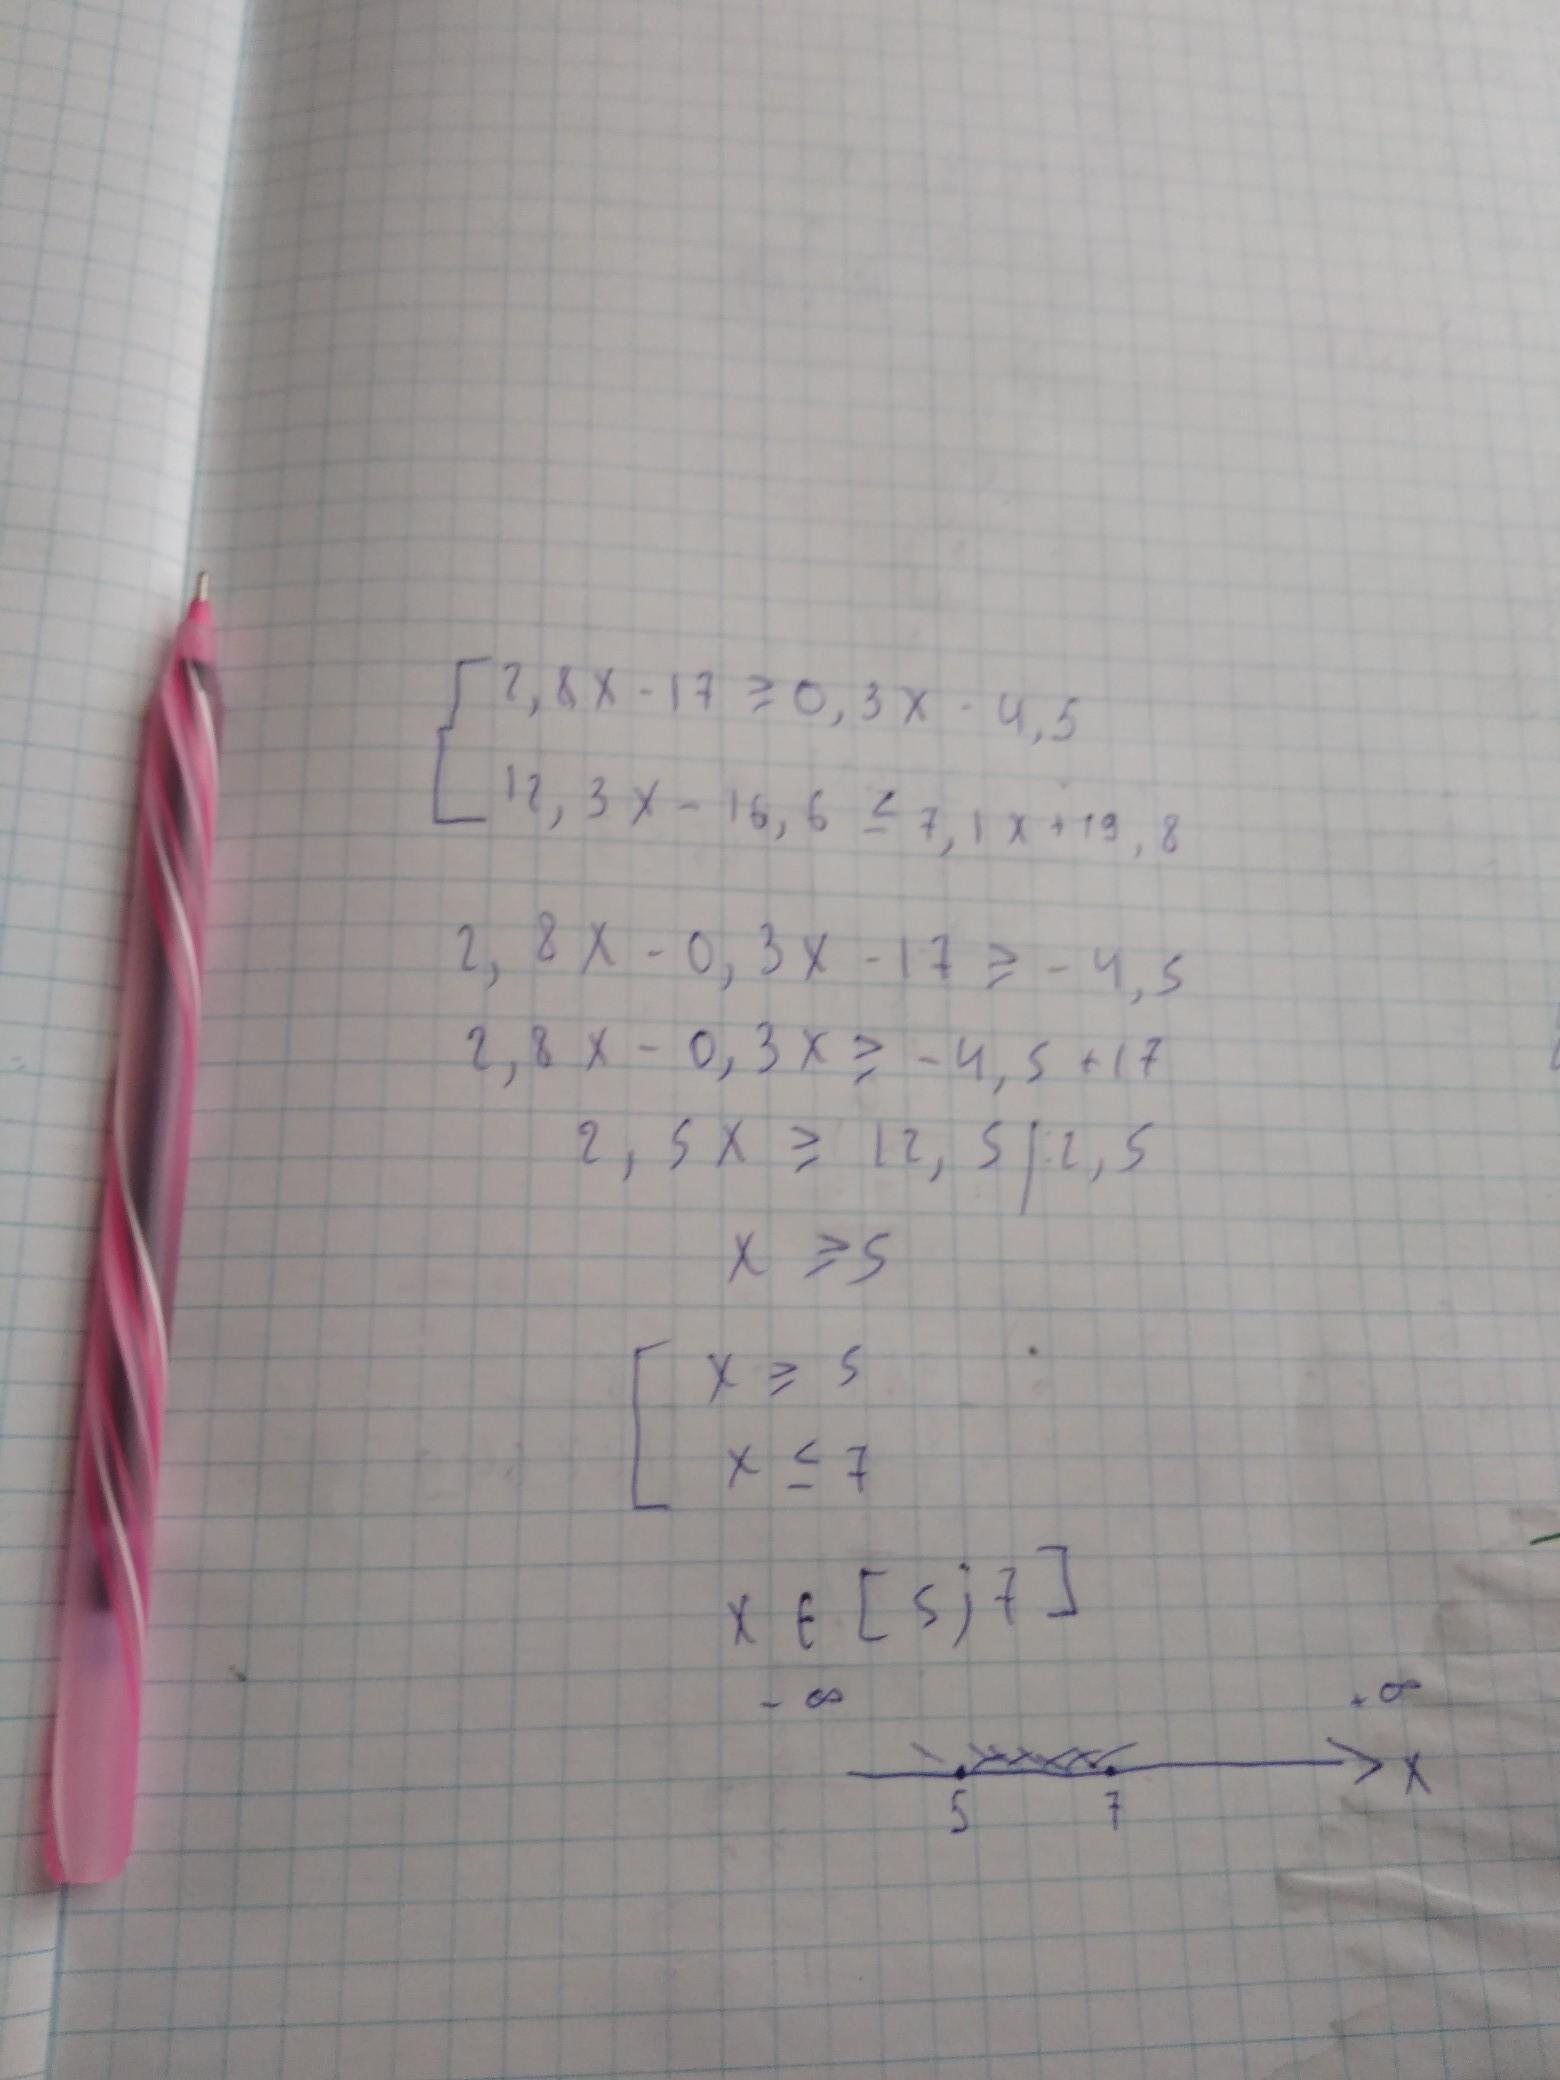 2,8x-17≥0,3x-4,5
12,3x-16,6≤7,1x+19,8
2,8x-0,3x-17≥-4,5
2,8x-0,3x≥-4,5+17
2,5x≥12,5|:2,5
x≥5
x≥5
x≤7
x∈[5;7]
-∞ +∞
x
5 7